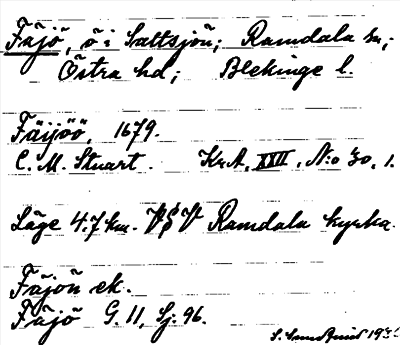 Fäjö, ö i Saltsjön; Ramdala sn;
Östra hd; Blekinge l.
Fäijöö, 1679.
C. M. Stuart. Kr.A. XXII, N:o 30, 1.
Läge 4.7 km. VSV Ramdala kyrka.
Fäjön ek.
Fäjö G. 11, Sj. 96.